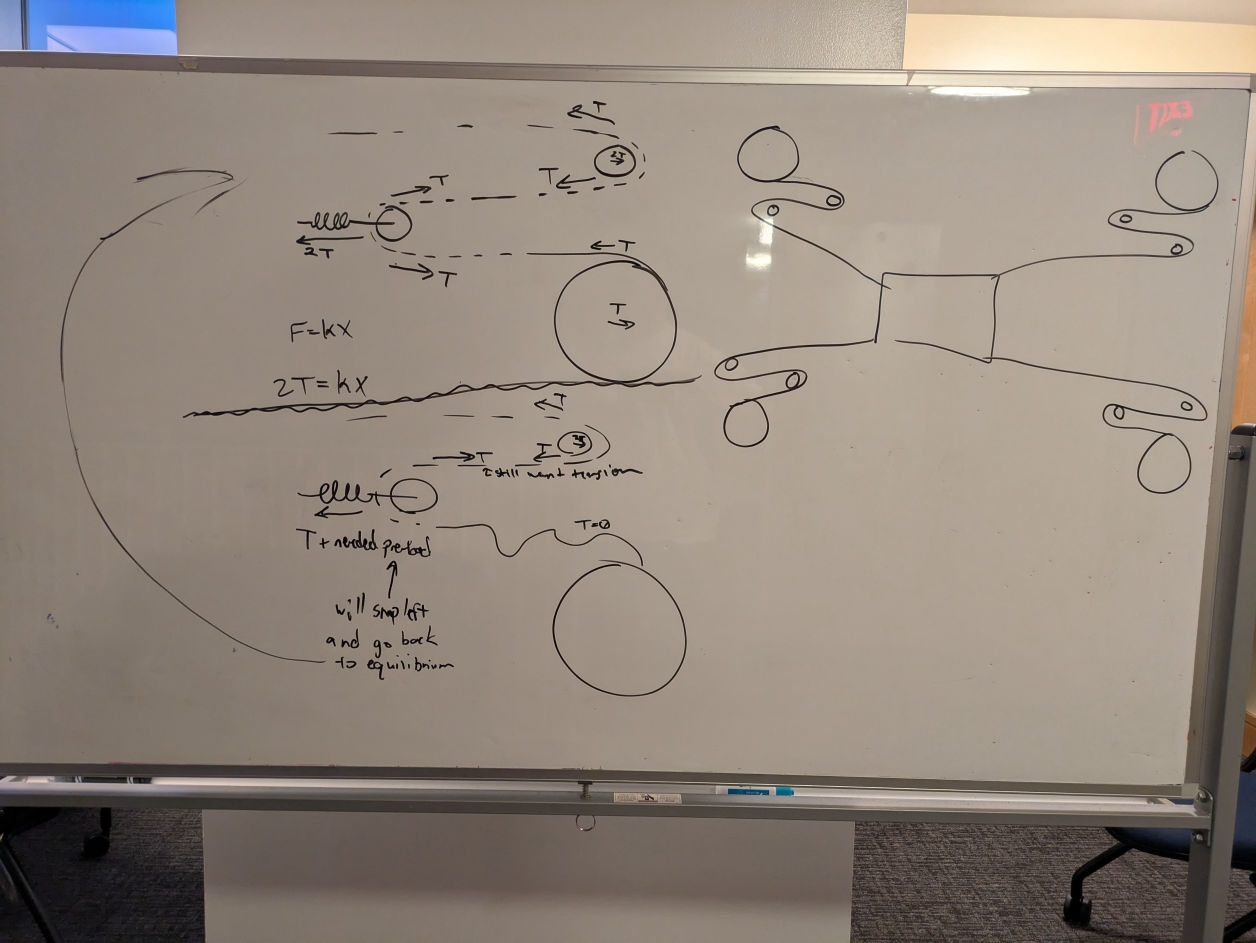 T
2T
T
T
T
2T
T
T
F=kx
2T=kx
T
T
T
2T
I still want tension
T=0
T + needed pre-load
will snap left
and go back
to equilibrium